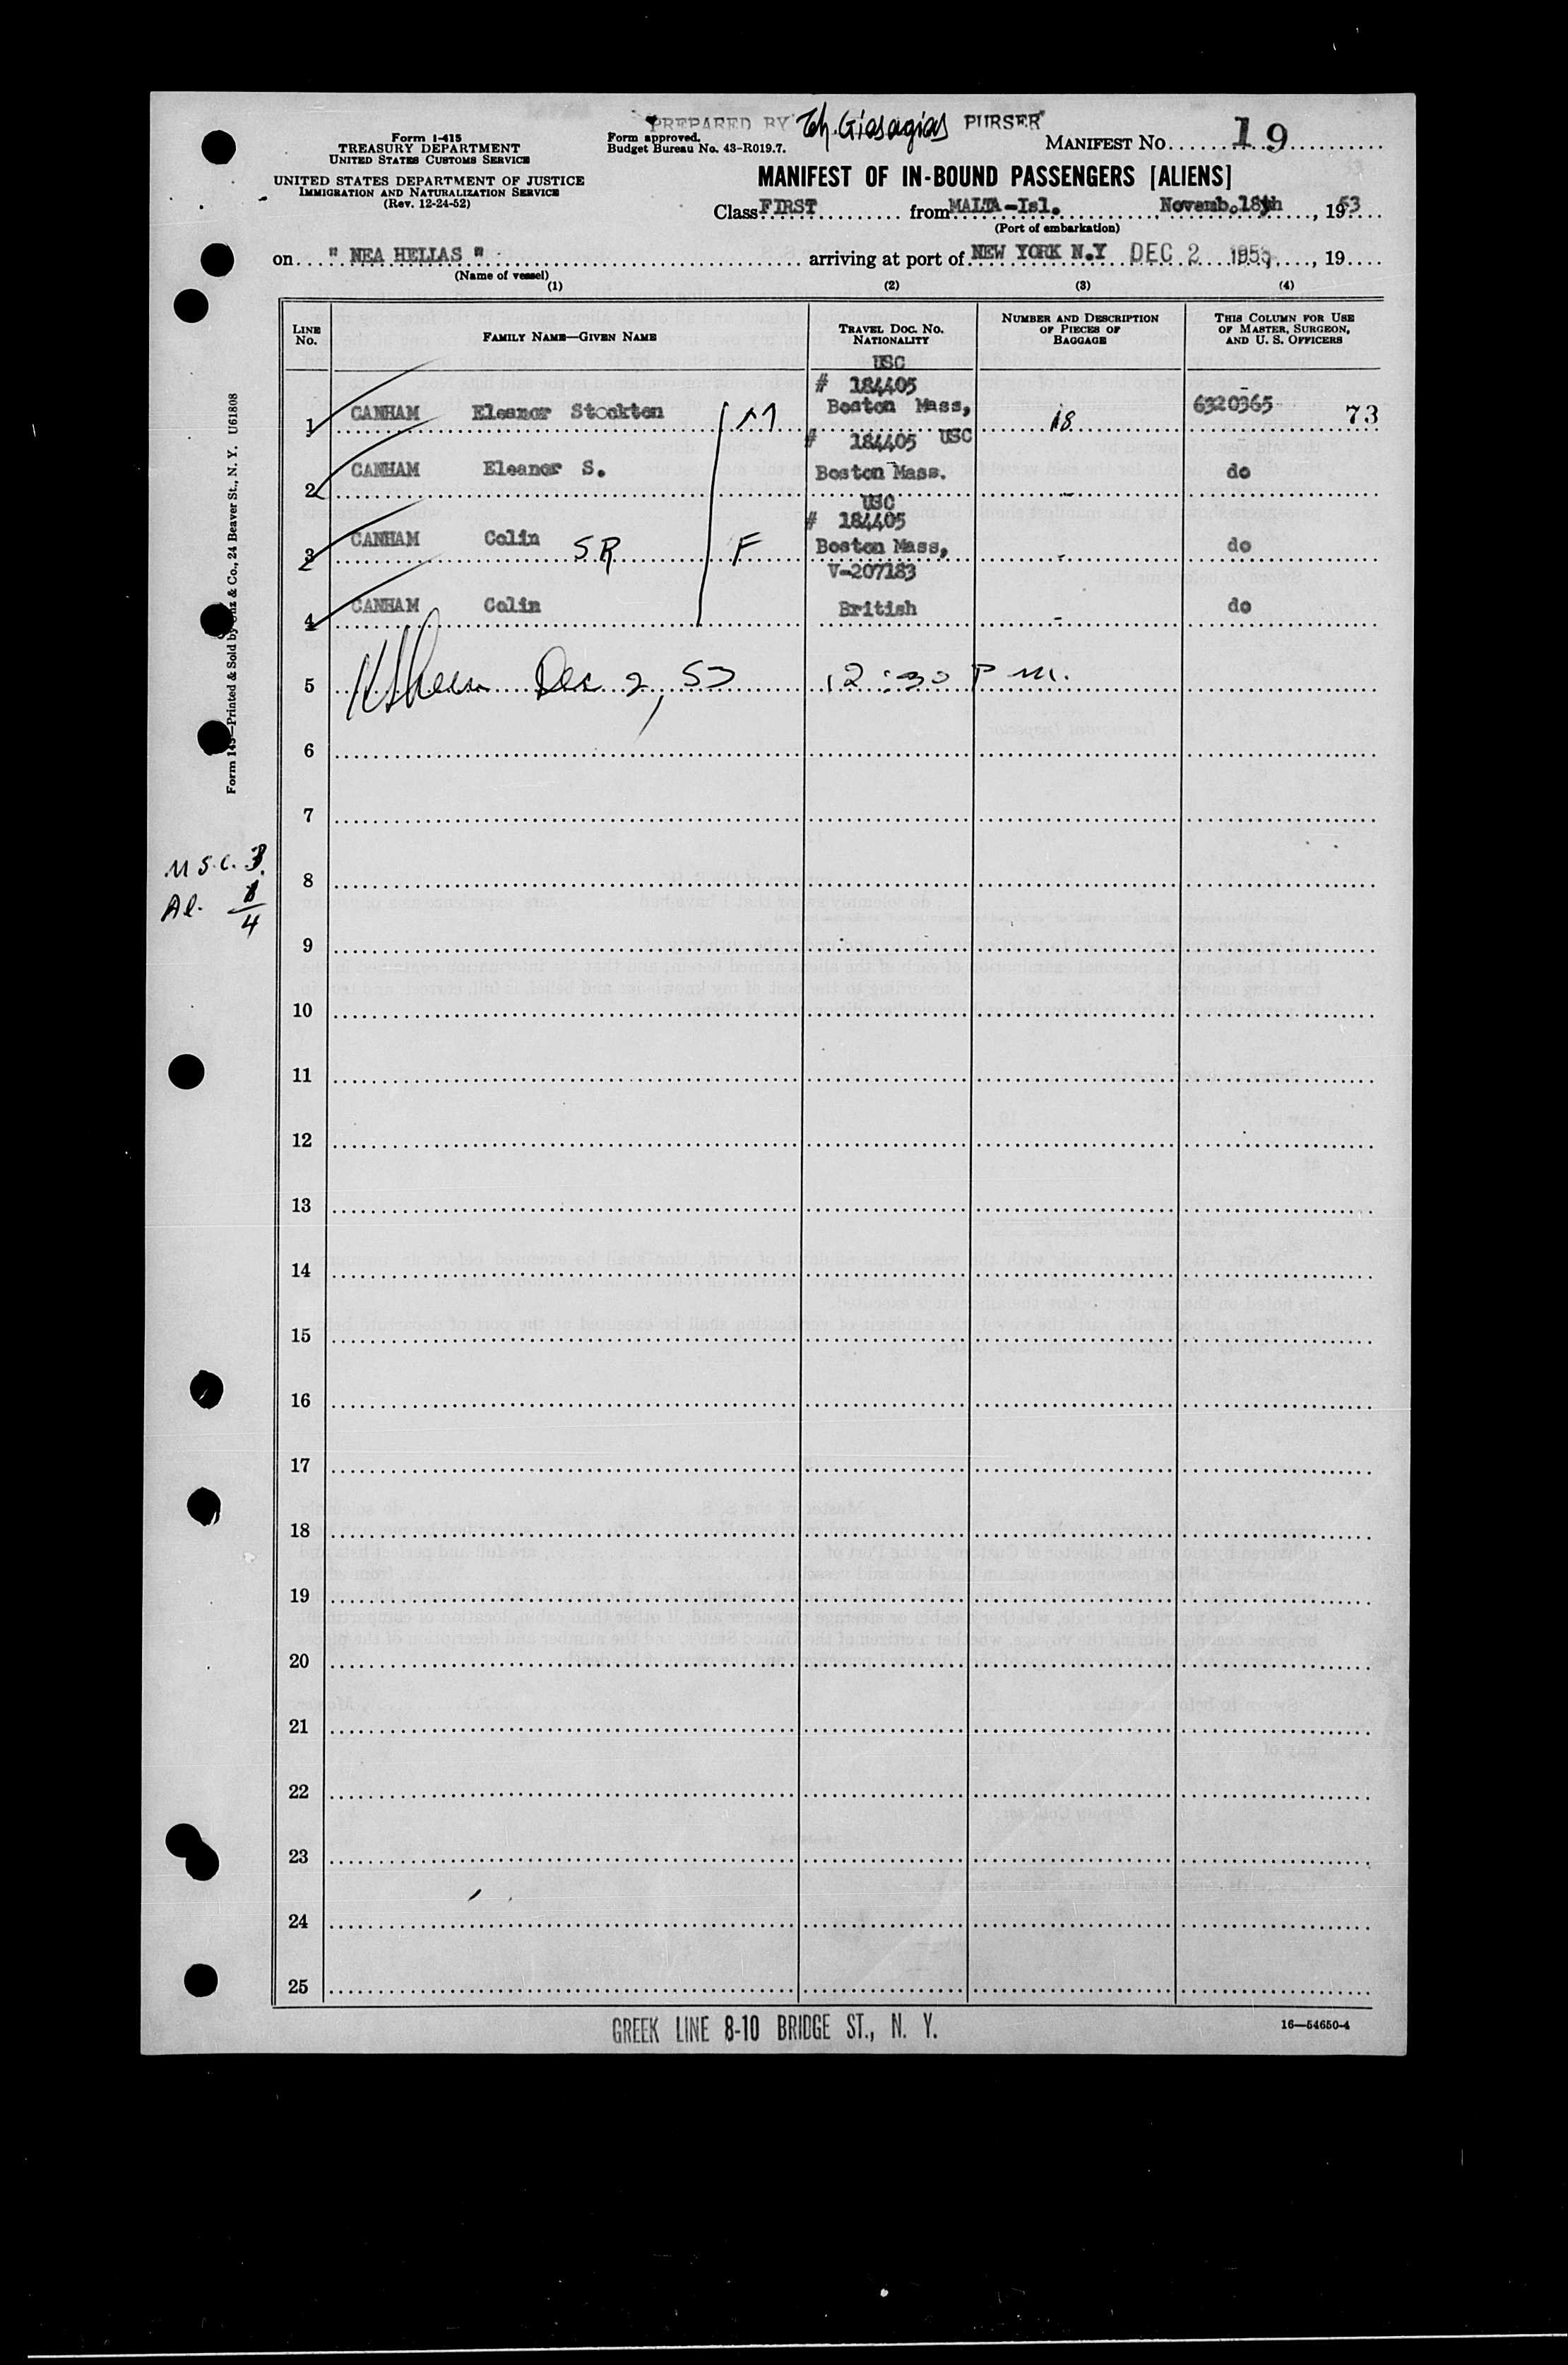 PREPARED BY Th. Giasagias PURSER
Form I-415
TREASURY DEPARTMENT
UNITED STATES CUSTOMS SERVICE
UNITED STATES DEPARTMENT OF JUSTICE
IMMIGRATION AND NATURALIZATION SERVICE
(Rev. 12-24-52)
Form approved.
Budget Bureau No. 43-R019.7.
MANIFEST NO. 19
MANIFEST OF IN-BOUND PASSENGERS [ALIENS]
Class FIRST from MALTA-Isl. Novemb.18th, 1953
(Port of embarkation)
on " NEA HELLAS " arriving at port of NEW YORK N.Y DEC 2 1953, 19
(Name of vessel)
(1) (2) (3) (4)
LINE NO.
FAMILY NAME—GIVEN NAME
TRAVEL DOC. NO. NATIONALITY
NUMBER AND DESCRIPTION OF PIECES OF BAGGAGE
THIS COLUMN FOR USE OF MASTER, SURGEON, AND U. S. OFFICERS
USC
# 184405
1 CANHAM Eleanor Stockton M Boston Mass, 18 6320365 73
# 184405 USC
2 CANHAM Eleanor S. Boston Mass. - do
USC
# 184405
3 CANHAM Colin SR F Boston Mass, - do
V-207183
4 CANHAM Colin British - do
5 Dec 2, 53 12:30 P m.
6
7
8
9
10
11
12
13
14
15
16
17
18
19
20
21
22
23
24
25
U.S.C. 3
Al. 1
4
Form 143—Printed & Sold by & Co., 24 Beaver St., N. Y. U61808
GREEK LINE 8-10 BRIDGE ST., N. Y.
16—54650-4